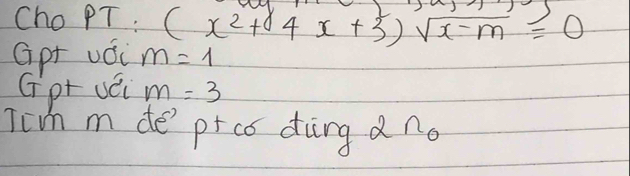 Cho PT: ( x² + 4x + 3) √x-m = 0
Gpt với m = 1
Gpt với m = 3
Tìm m để pt có đúng 2 n₀